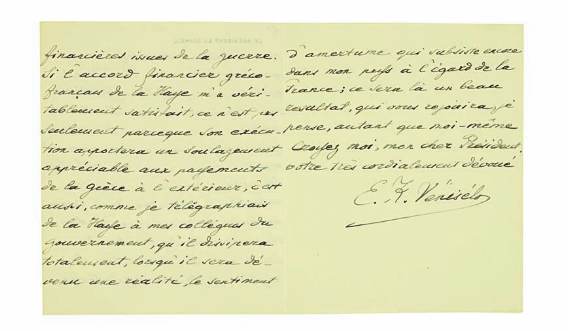 financières issues de la guerre.
Si l'accord financier gréco-
français de la Haye m'a véri-
tablement satisfait, ce n'est pas
seulement parceque son exécu-
tion apportera un soulagement
appréciable aux payements
de la Grèce à l'extérieur, c'est
aussi, comme je télégraphiais
de la Haye à mes collègues du
gouvernement, qu'il dissipera
totalement, lorsqu'il sera dé-
venu une réalité, le sentiment
d'amertume qui subsiste encore
dans mon pays à l'égard de la
France; ce sera là un beau
resultat, qui vous rejouira, je
pense, autant que moi-même
Croyez moi, mon cher Président,
votre très cordialement dévoué
E. K. Vénisélos